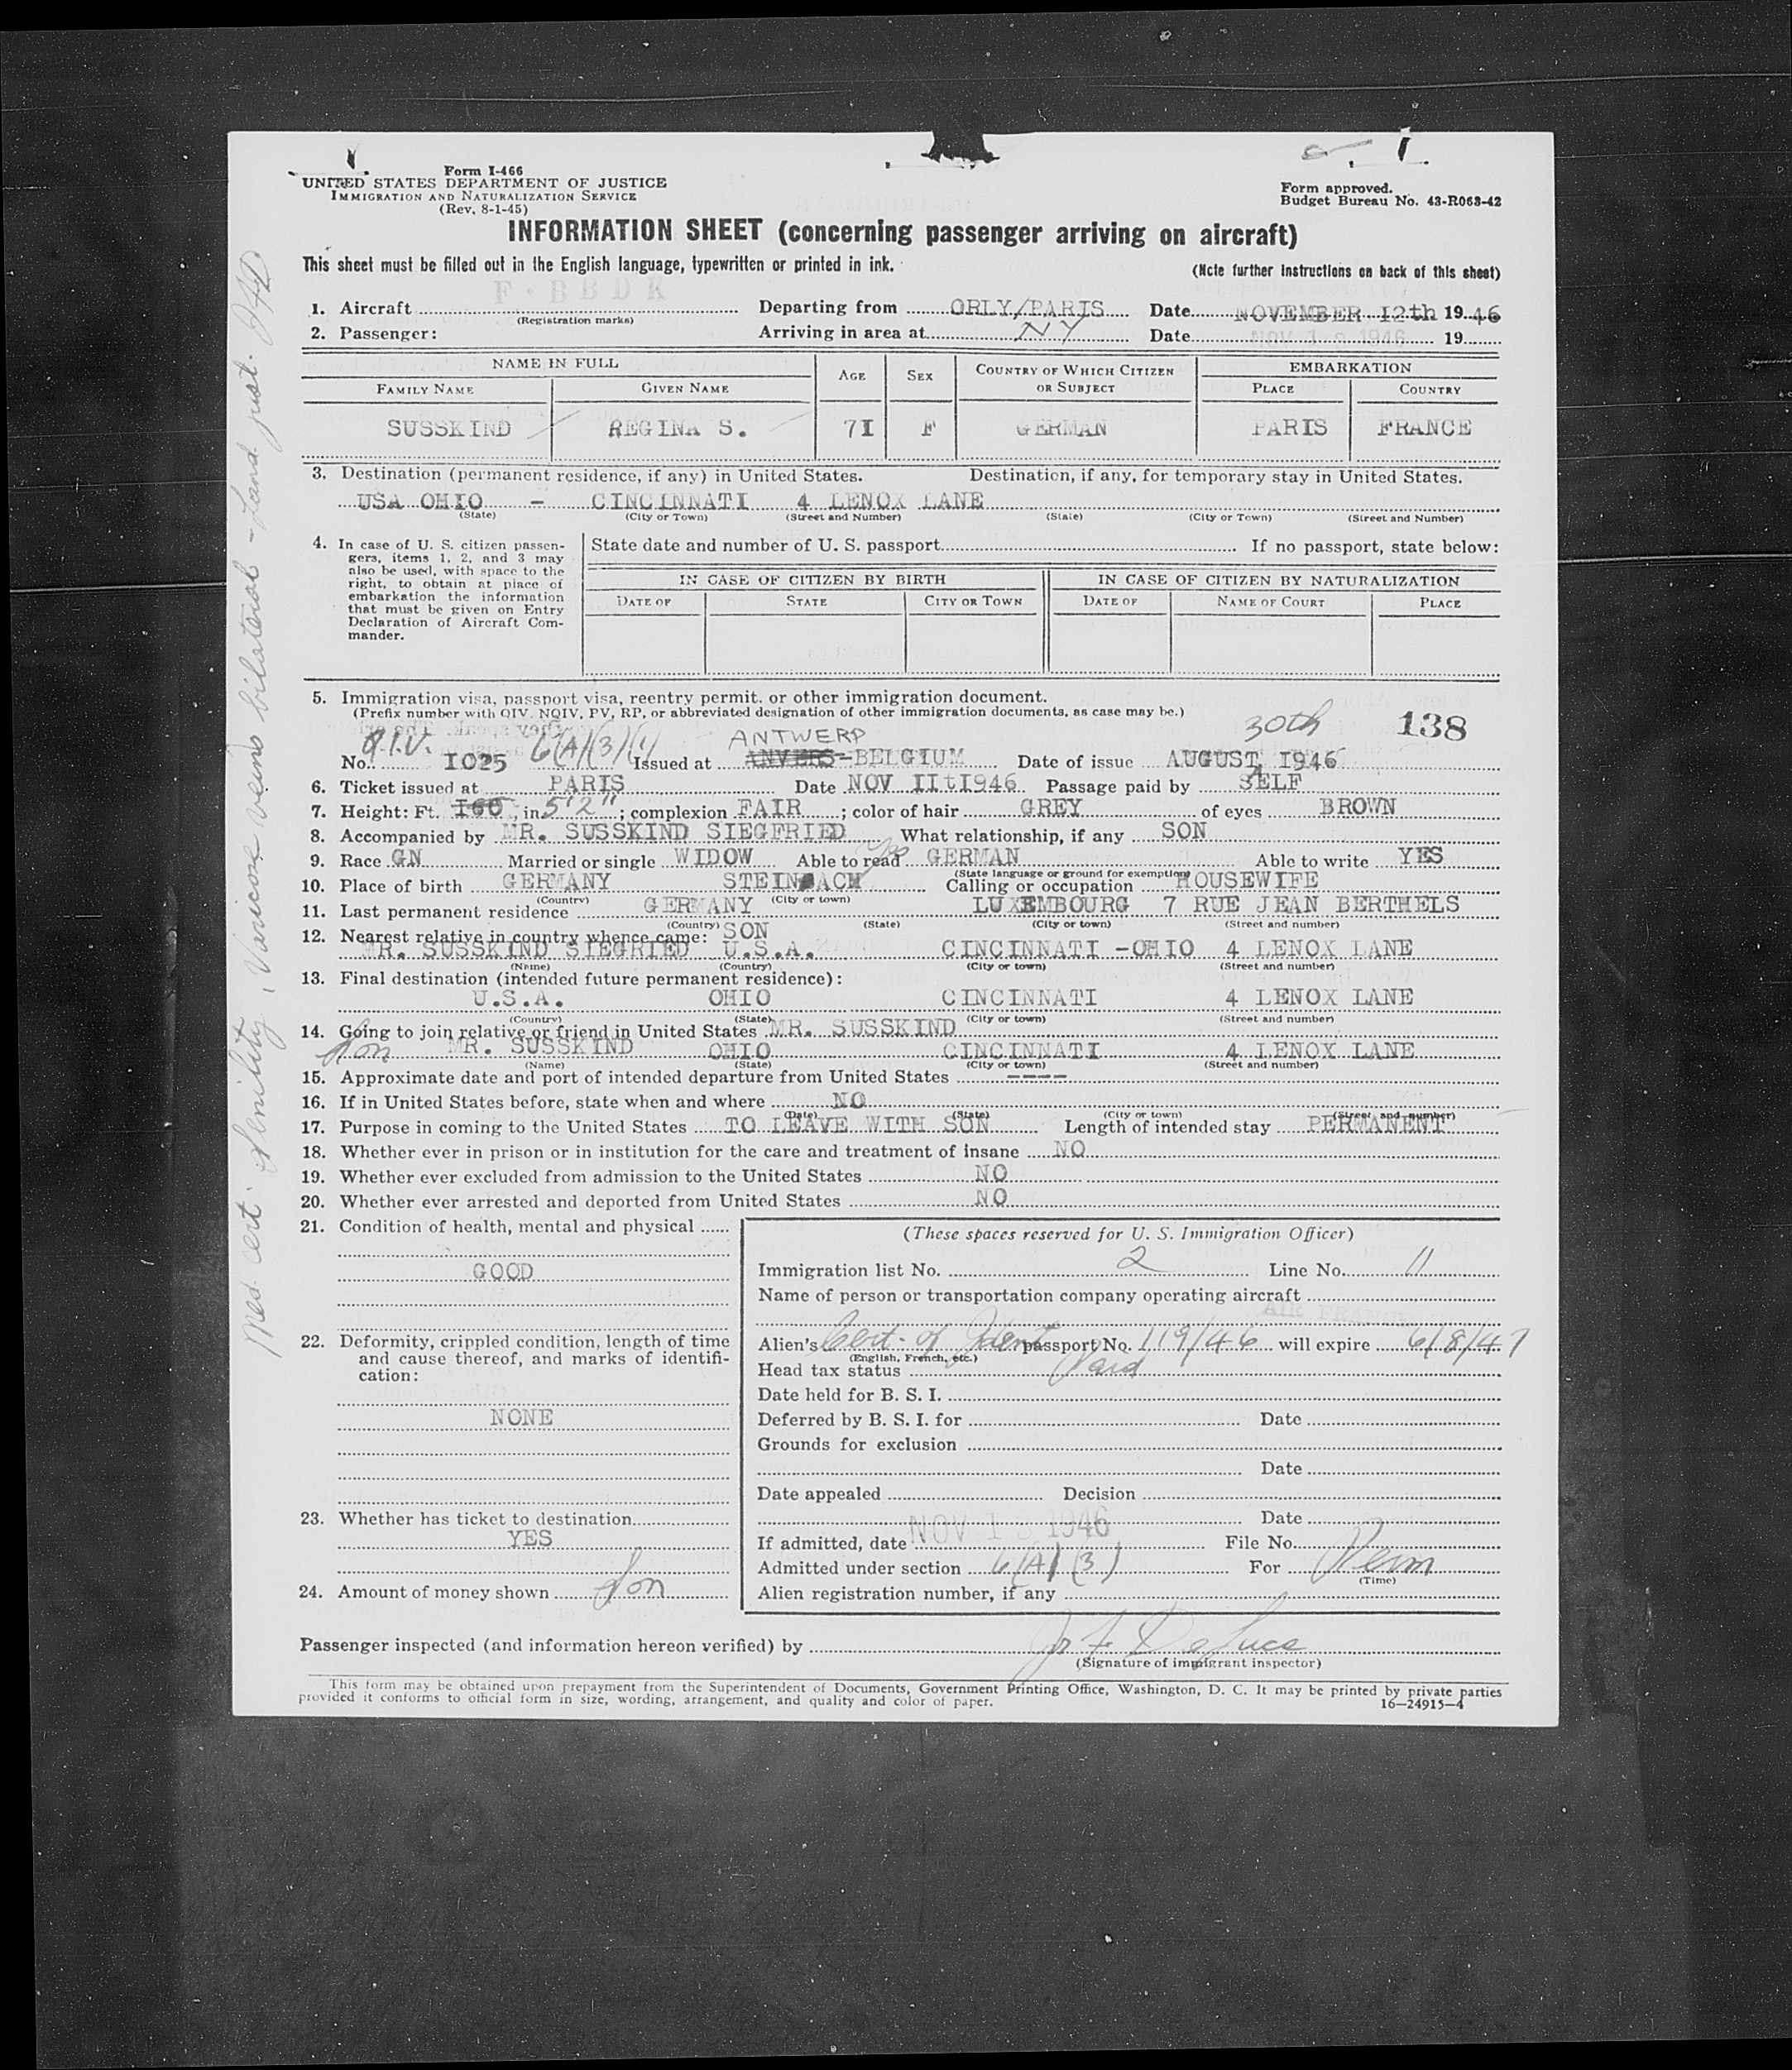 Form I-466
UNITED STATES DEPARTMENT OF JUSTICE
IMMIGRATION AND NATURALIZATION SERVICE
(Rev. 8-1-45)
Form approved.
Budget Bureau No. 43-R063-42
INFORMATION SHEET (concerning passenger arriving on aircraft)
This sheet must be filled out in the English language, typewritten or printed in ink.
(Note further instructions on back of this sheet)
1. Aircraft F-BBDK Departing from ORLY/PARIS Date NOVEMBER 12th 1946
(Registration marks)
2. Passenger: Arriving in area at NY Date NOV 1 1946 19
NAME IN FULL AGE SEX COUNTRY OF WHICH CITIZEN OR SUBJECT EMBARKATION
FAMILY NAME GIVEN NAME PLACE COUNTRY
SUSSKIND REGINA S. 7I F GERMAN PARIS FRANCE
3. Destination (permanent residence, if any) in United States. Destination, if any, for temporary stay in United States.
USA OHIO - CINCINNATI 4 LENOX LANE
(State) (City or Town) (Street and Number) (State) (City or Town) (Street and Number)
4. In case of U. S. citizen passen-
gers, items 1, 2, and 3 may
also be used, with space to the
right, to obtain at place of
embarkation the information
that must be given on Entry
Declaration of Aircraft Com-
mander.
State date and number of U. S. passport If no passport, state below:
IN CASE OF CITIZEN BY BIRTH IN CASE OF CITIZEN BY NATURALIZATION
DATE OF STATE CITY OR TOWN DATE OF NAME OF COURT PLACE
5. Immigration visa, passport visa, reentry permit, or other immigration document.
(Prefix number with QIV, NQIV, PV, RP, or abbreviated designation of other immigration documents, as case may be.)
30th 138
ANTWERP
No. Q.I.V. I025 6(A)(3)(1) Issued at ANVERS-BELGIUM Date of issue AUGUST 1946
6. Ticket issued at PARIS Date NOV IItI946 Passage paid by SELF
7. Height: Ft. I60, in 5'2"; complexion FAIR; color of hair GREY of eyes BROWN
8. Accompanied by MR. SUSSKIND SIEGFRIED What relationship, if any SON
9. Race GN Married or single WIDOW Able to read Yes GERMAN Able to write YES
(State language or ground for exemption)
10. Place of birth GERMANY STEINBACH Calling or occupation HOUSEWIFE
(Country) (City or town)
11. Last permanent residence GERMANY LUXEMBOURG 7 RUE JEAN BERTHELS
(Country) (State) (City or town) (Street and number)
12. Nearest relative in country whence came: SON
MR. SUSSKIND SIEGRIED U.S.A. CINCINNATI -OHIO 4 LENOX LANE
(Name) (Country) (City or town) (Street and number)
13. Final destination (intended future permanent residence):
U.S.A. OHIO CINCINNATI 4 LENOX LANE
(Country) (State) (City or town) (Street and number)
14. Going to join relative or friend in United States MR. SUSSKIND
Son MR. SUSSKIND OHIO CINCINNATI 4 LENOX LANE
(Name) (State) (City or town) (Street and number)
15. Approximate date and port of intended departure from United States ----
16. If in United States before, state when and where NO
(Date) (State) (City or town) (Street and number)
17. Purpose in coming to the United States TO LEAVE WITH SON Length of intended stay PERMANENT
18. Whether ever in prison or in institution for the care and treatment of insane NO
19. Whether ever excluded from admission to the United States NO
20. Whether ever arrested and deported from United States NO
21. Condition of health, mental and physical
GOOD
22. Deformity, crippled condition, length of time
and cause thereof, and marks of identifi-
cation:
NONE
23. Whether has ticket to destination
YES
24. Amount of money shown Son
(These spaces reserved for U. S. Immigration Officer)
Immigration list No. 2 Line No. 11
Name of person or transportation company operating aircraft
AIR FRANCE
Alien's Cert. of Ident passport No. 119/46 will expire 6/8/47
(English, French, etc.)
Head tax status Paid
Date held for B. S. I.
Deferred by B. S. I. for Date
Grounds for exclusion
Date
Date appealed Decision
Date
If admitted, date NOV 13 1946 File No.
Admitted under section 6(A)(3) For Perm
(Time)
Alien registration number, if any
Passenger inspected (and information hereon verified) by
(Signature of immigrant inspector)
This form may be obtained upon prepayment from the Superintendent of Documents, Government Printing Office, Washington, D. C. It may be printed by private parties
provided it conforms to official form in size, wording, arrangement, and quality and color of paper. 16—24915-4
Med cert. Senility, Varicose veins bilateral -